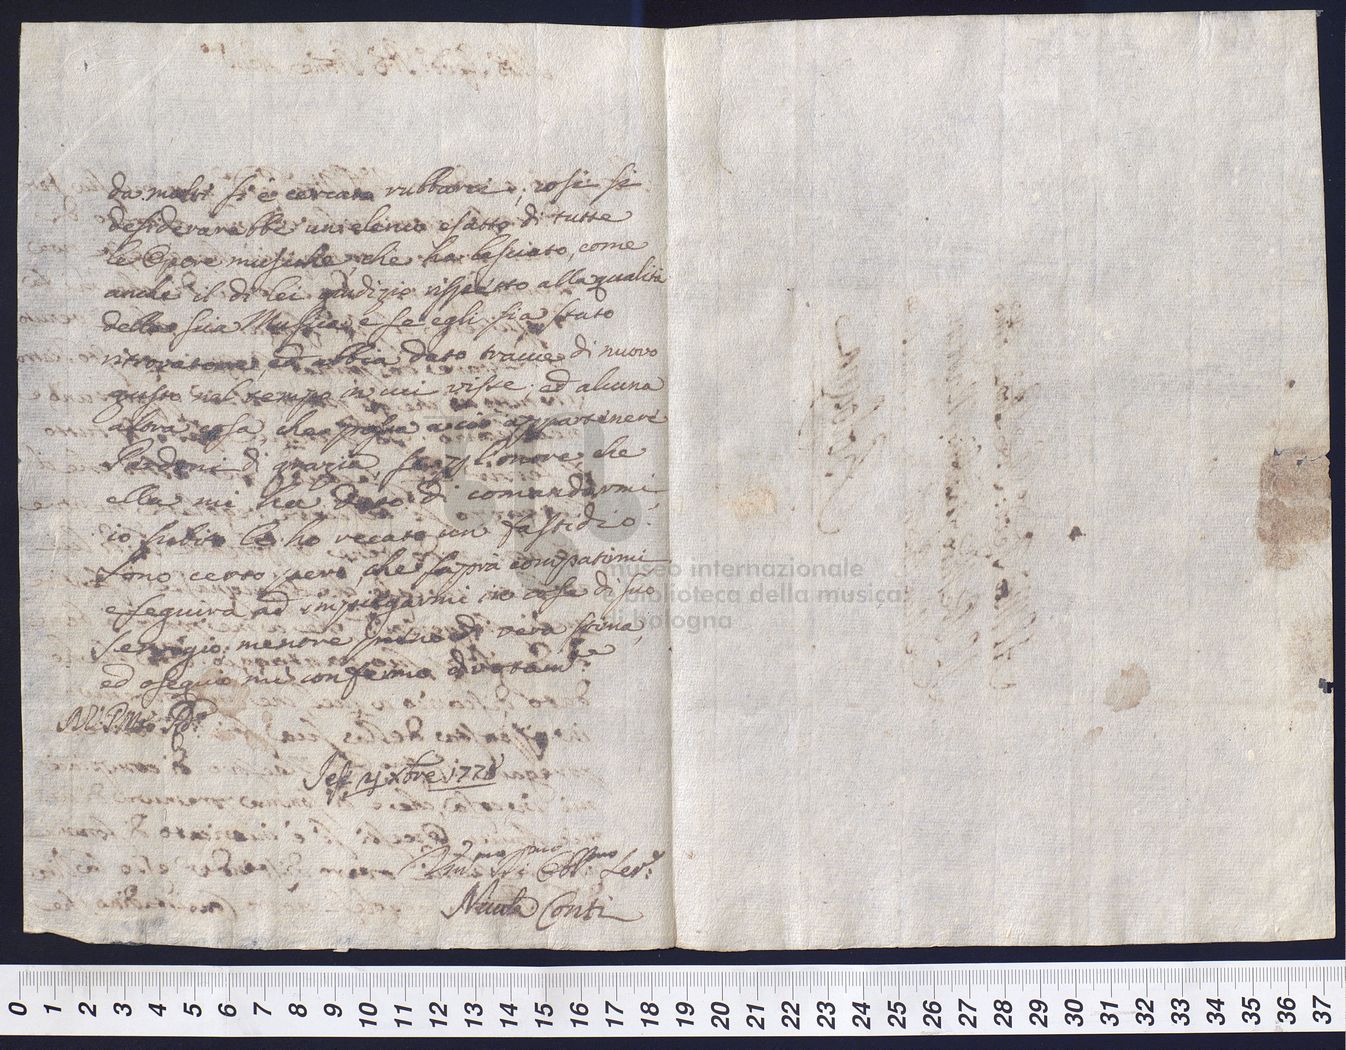 da molti si è cercato rubbarci; così si
desiderarebbe un elenco esatto di tutte
le Opere musiche, che ha lasciato, come
anche il di lei giudizio rispetto alla qualità
della sua Musica, e se egli sia stato
ritrovatore, ed abbia dato traccie di nuovo
gusto nel tempo in cui visse, ed alcuna
altra cosa, che possa a ciò appartenere
Perdoni di grazia, se l'onore che
ella mi ha dato di comandarmi,
io subito le ho recato un fastidio.
Sono certo però, che saprà compatirmi
e seguirà ad impiegarmi in cose di suo
servigio, mentre pieno di vera stima,
ed osequio mi confermo divotam.te
Jesi 4 Xbre 1771
Obb.mo Ser.e
Nicola Conti
museo internazionale
e biblioteca della musica
di bologna
0 1 2 3 4 5 6 7 8 9 10 11 12 13 14 15 16 17 18 19 20 21 22 23 24 25 26 27 28 29 30 31 32 33 34 35 36 37